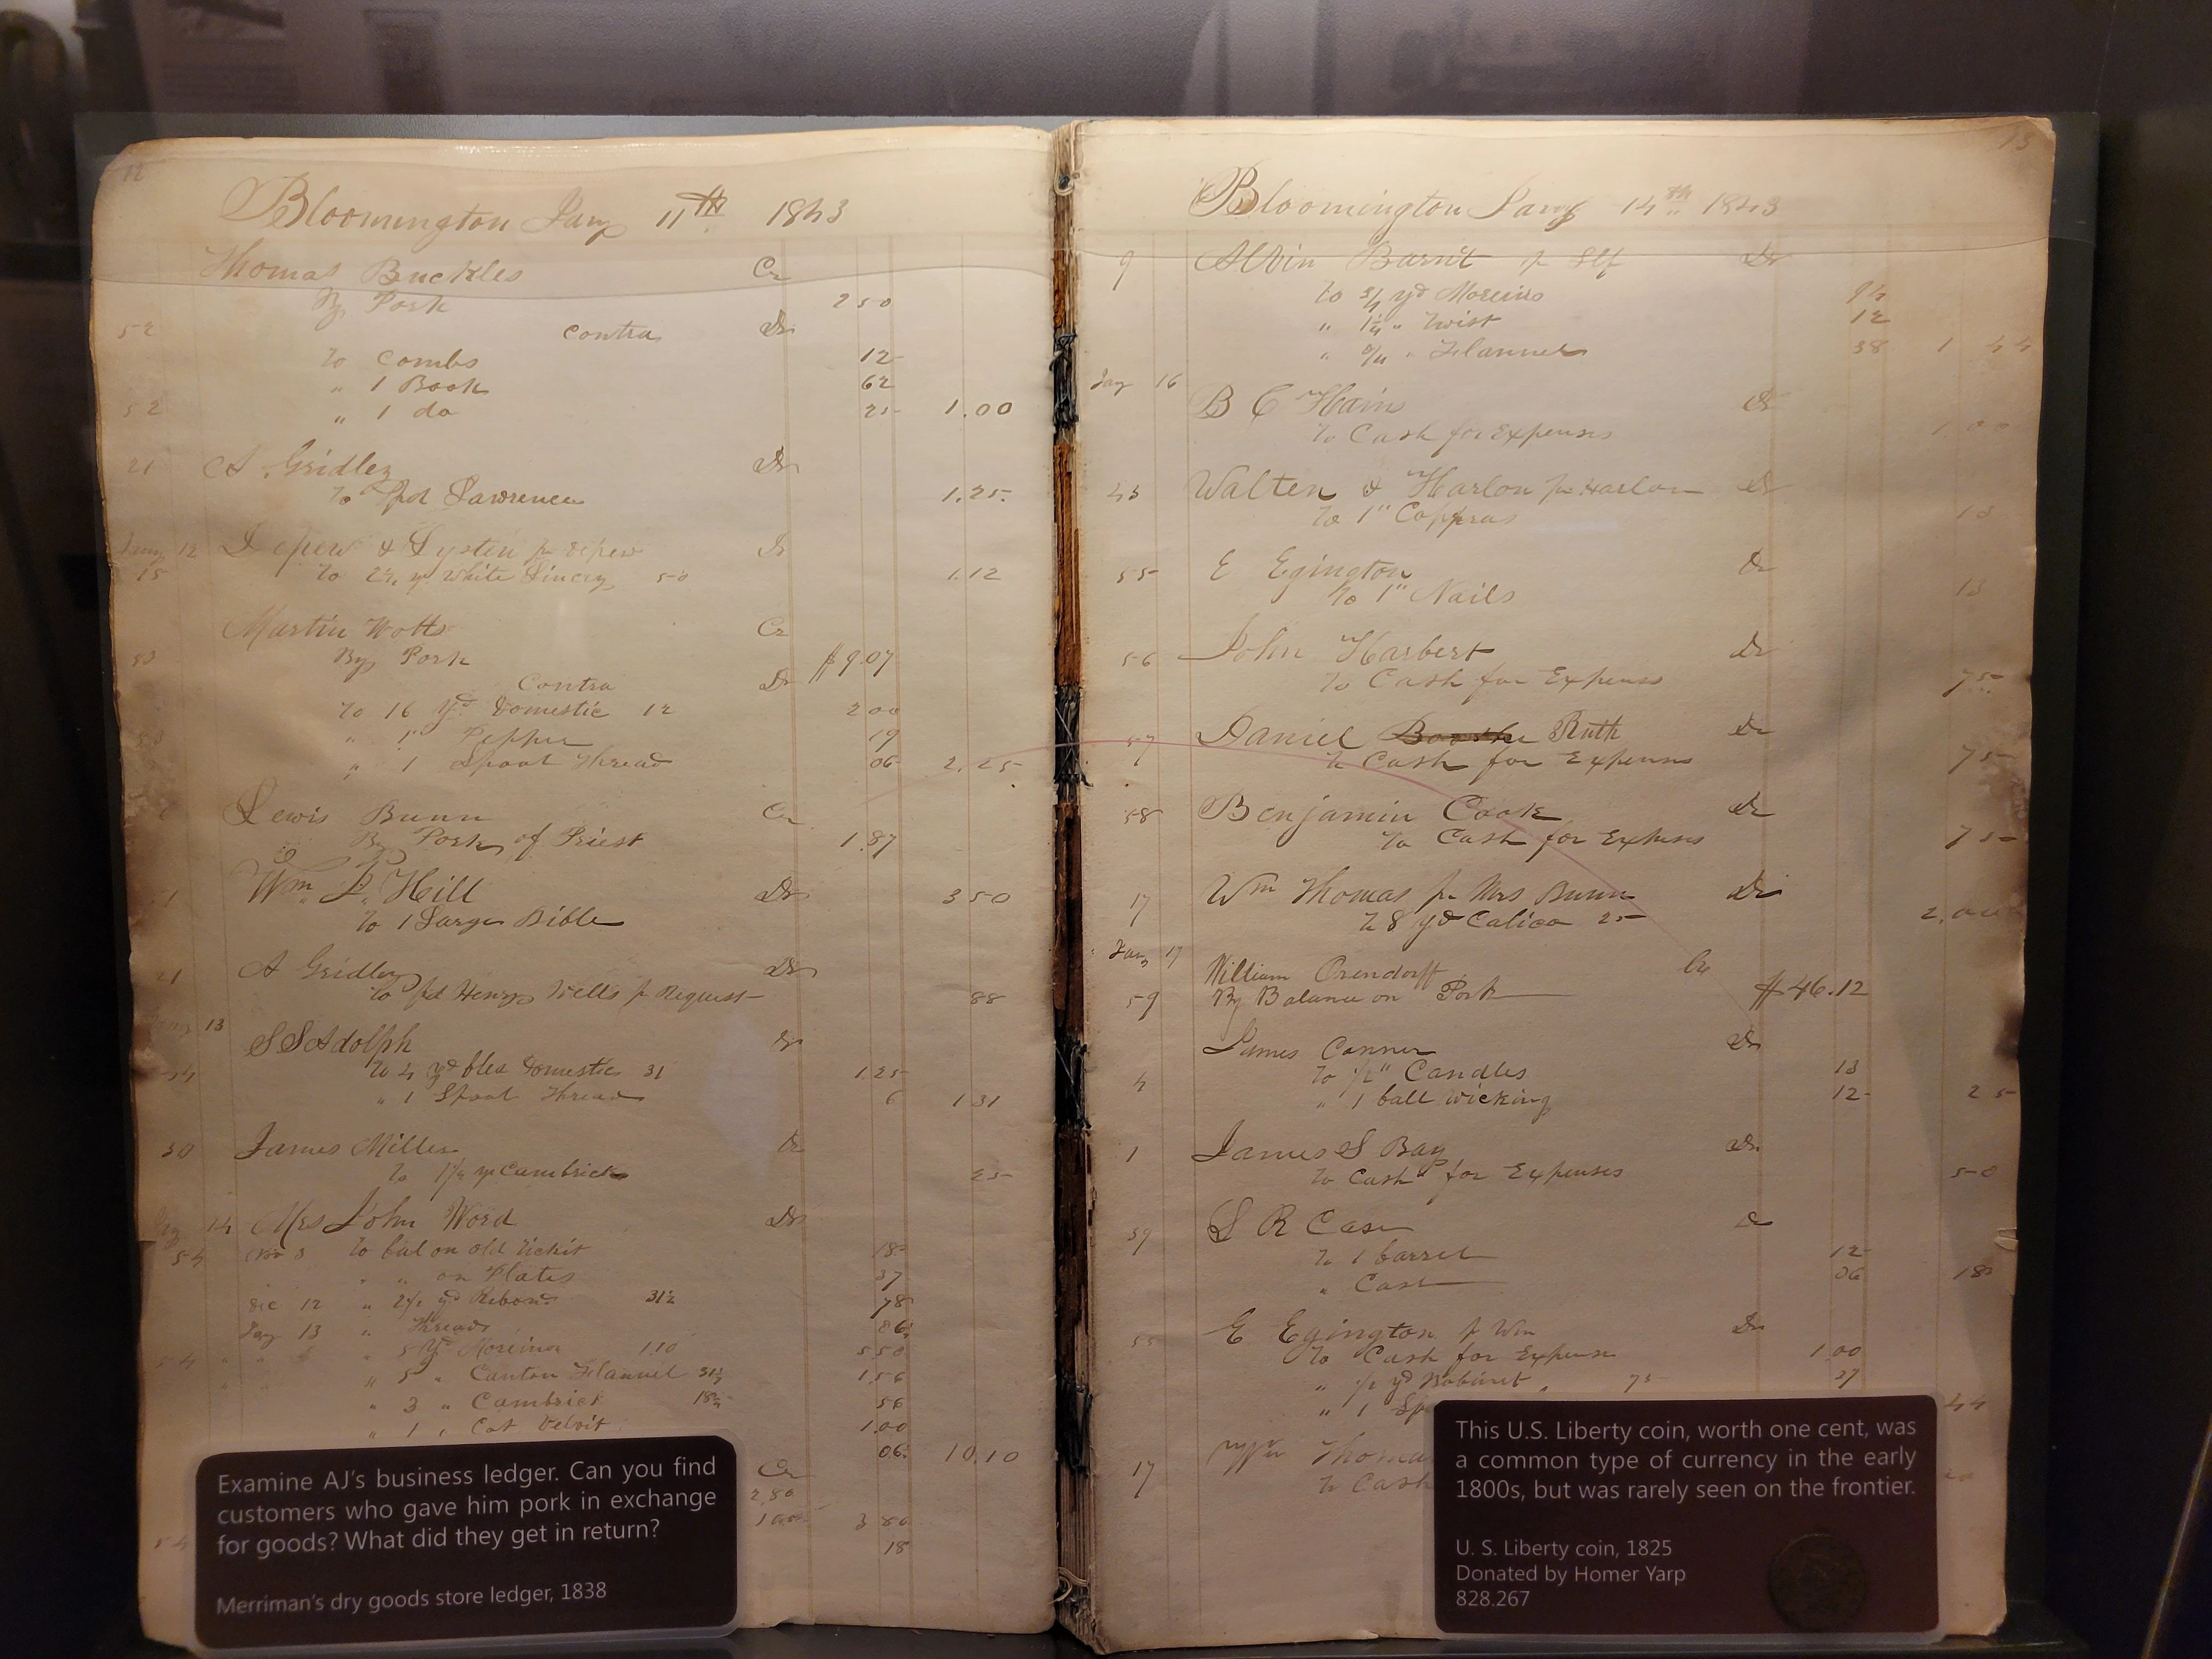 12
Bloomington Jany 11th 1843
Thomas Buckles Cr
By Pork 250
52 Contra Dr
To Combs 12
" 1 Book 62
52 " 1 do 25 1.00
21 A. Gridley Dr
To pd Lawrence 1.25
Jany 12 Depew & Lysten pr Depew Dr
15 To 2¼ yd White 50 1.12
Martin Wotts Cr
53 By Pork $9.07
Contra Dr
To 16 yd Domestic 12 200
53 " 1" Pepper 19
" 1 Spool Thread 06 2.25
Lewis Bunn Cr
By Pork of Priest 1.87
Wm. P. Hill Dr 350
To 1 Large Bible
21 A Gridley Dr
To pd Henry Wells pr Request 88
13
S S Adolph Dr
54 To 4 yd blea Domestic 31 1.25
" 1 Spool Thread 6 1 31
30 James Miller Dr
To 1¼ yd Cambrick 25
14 Mrs John Word Dr
54 3 To bal on old Tickit 18
" " on Plates 37
Dec 12 " 2½ yd Ribond 31½ 78
Jany 13 " Threads 06
54 " " " 5 yd Moreino 1.10 550
" 5 " Canton Flannel 31½ 1.56
" 3 " Cambrick 18¾ 56
" 1 " Cot Velvit 1.00
06 10.10
Cr
2.80
1.00 3 80
54 18
Examine AJ's business ledger. Can you find
customers who gave him pork in exchange
for goods? What did they get in return?
Merriman's dry goods store ledger, 1838
13
Bloomington Jany 14th 1843
9 Alvin Barnit pr Self Dr
To ¾ yd Moreino 94
" 1¼ " Twist 12
" " Flannel 38 1 44
Jany 16
B C Hain Dr
To Cash for Expenses 1.00
43 Walten & Harlon pr Harlon Dr
To 1" Coppras 13
55 E Egington Dr
To 1" Nails 13
56 John Harbert Dr
To Cash for Expenses 75
57 Daniel Ruth Dr
To Cash for Expenses 75
58 Benjamin Cook Dr
To Cash for Expenses 75
17 Wm Thomas pr Mrs Bunn Dr
To 8 yd Calico 25 2.00
Jany 17
William Orendorff Cr
59 By Balance on Pork $46.12
James Conner Dr
4 To ½" Candles 13
" 1 ball Wicking 12 25
1 James S Bay Dr
To Cash for Expenses 50
39 S R Case Dr
To 1 barrel 12
" Cash 06 18
55 E Egington pr Wm Dr
To Cash for Expense 1.00
" ½ yd Bobinet " 75 37
" 1 Sp 44
Thoma
17 To Cash
This U.S. Liberty coin, worth one cent, was
a common type of currency in the early
1800s, but was rarely seen on the frontier.
U. S. Liberty coin, 1825
Donated by Homer Yarp
828.267